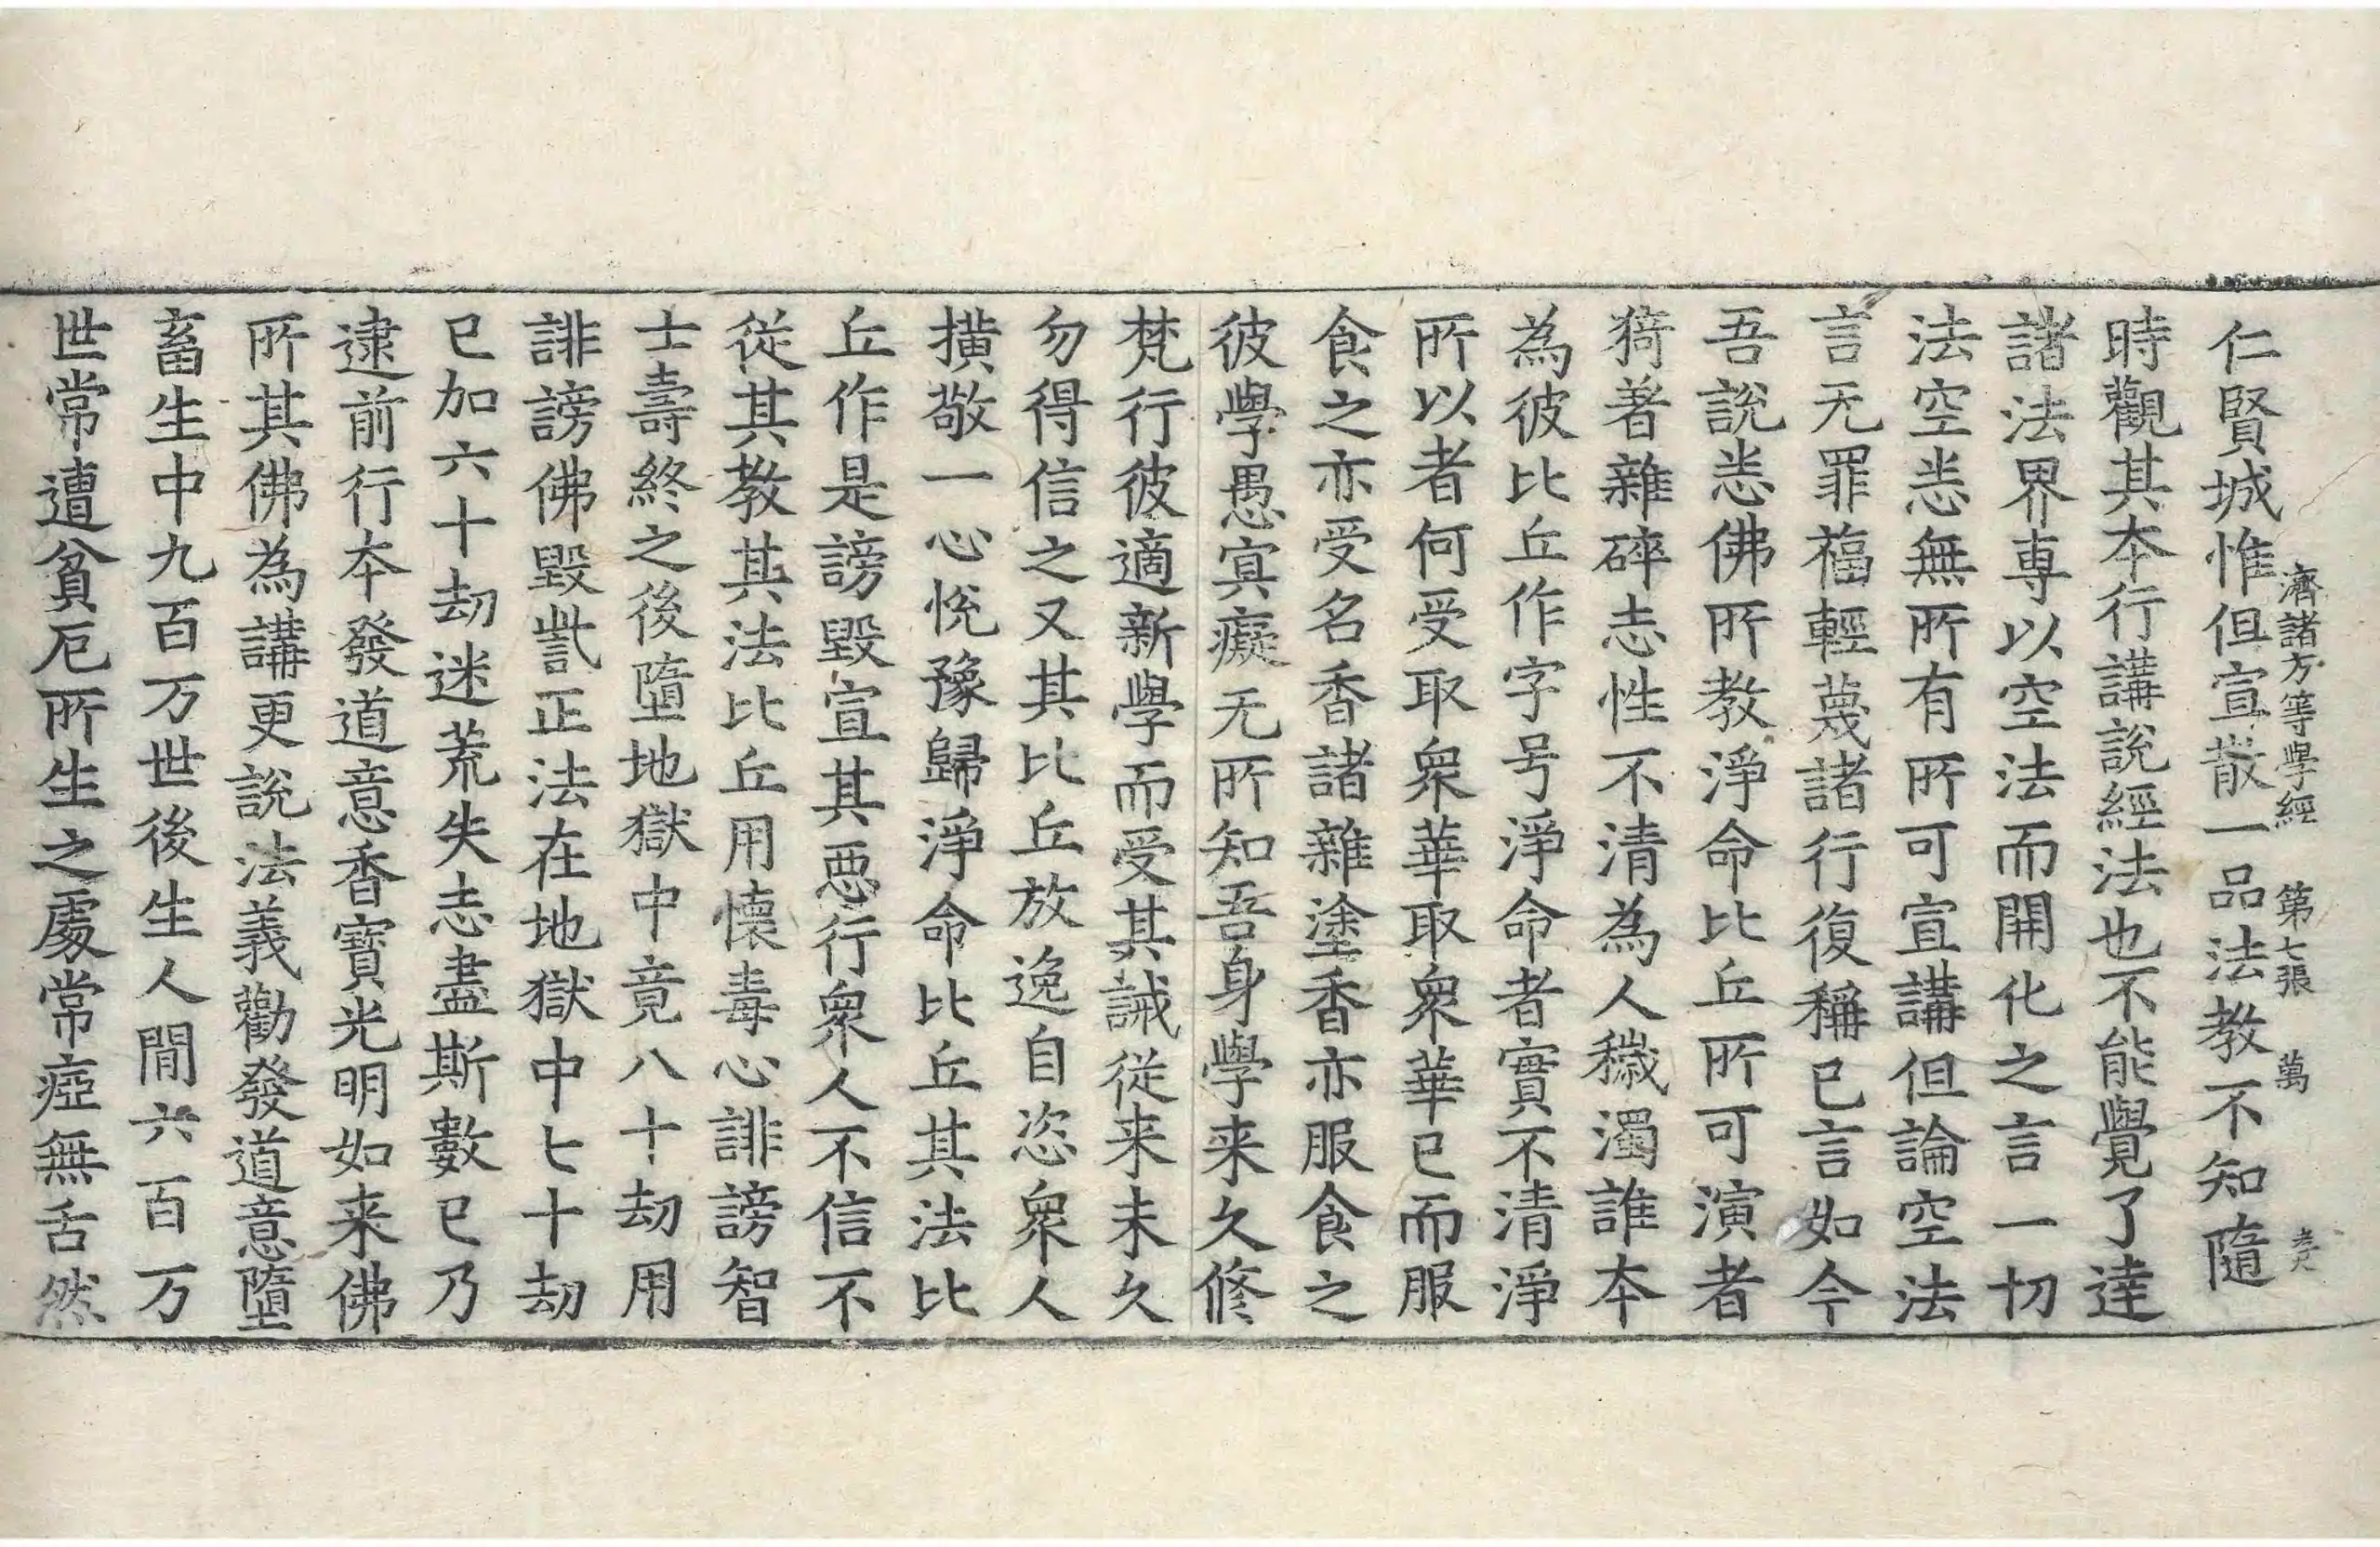 濟諸方等學經 第七張 萬
仁賢城惟但宣散一品法教不知隨
時觀其本行講說經法也不能覺了達
諸法界專以空法而開化之言一切
法空恙無所有所可宣講但論空法
言无罪福輕蔑諸行復稱已言如今
吾說恙佛所教淨命比丘所可演者
猗著雜碎志性不清為人穢濁誰本
為彼比丘作字号淨命者實不清淨
所以者何受取衆華取衆華已而服
食之亦受名香諸雜塗香亦服食之
彼學愚冥癡无所知吾身學来久修
梵行彼適新學而受其誡從来未久
勿得信之又其比丘放逸自恣衆人
撗敬一心恱豫歸淨命比丘其法比
丘作是謗毀宣其惡行衆人不信不
從其教其法比丘用懷毒心誹謗智
士壽終之後墮地獄中竟八十劫用
誹謗佛毀訾正法在地獄中七十劫
已加六十劫迷荒失志盡斯數已乃
逮前行本發道意香寶光明如来佛
所其佛為講更說法義勸發道意墮
畜生中九百万世後生人間六百万
世常遭貧厄所生之處常瘂無舌然